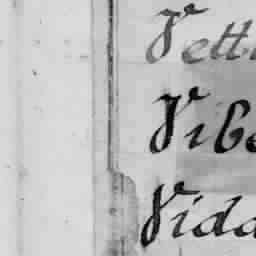 Vett
Vibe
Vida